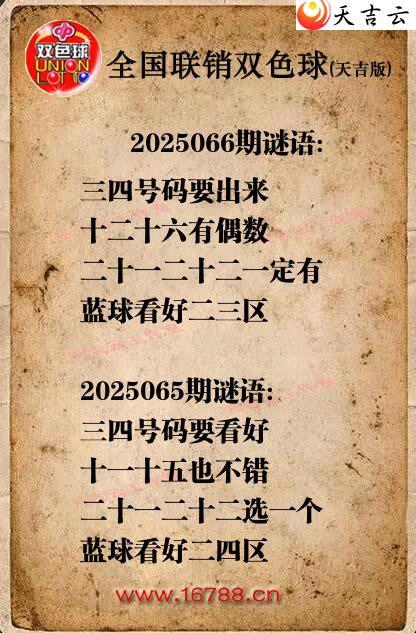 天吉云
双色球
UNION
LOTTO
全国联销双色球(天吉版)
2025066期谜语:
三四号码要出来
十二十六有偶数
二十一二十二一定有
蓝球看好二三区
2025065期谜语:
三四号码要看好
十一十五也不错
二十一二十二选一个
蓝球看好二四区
www.16788.cn